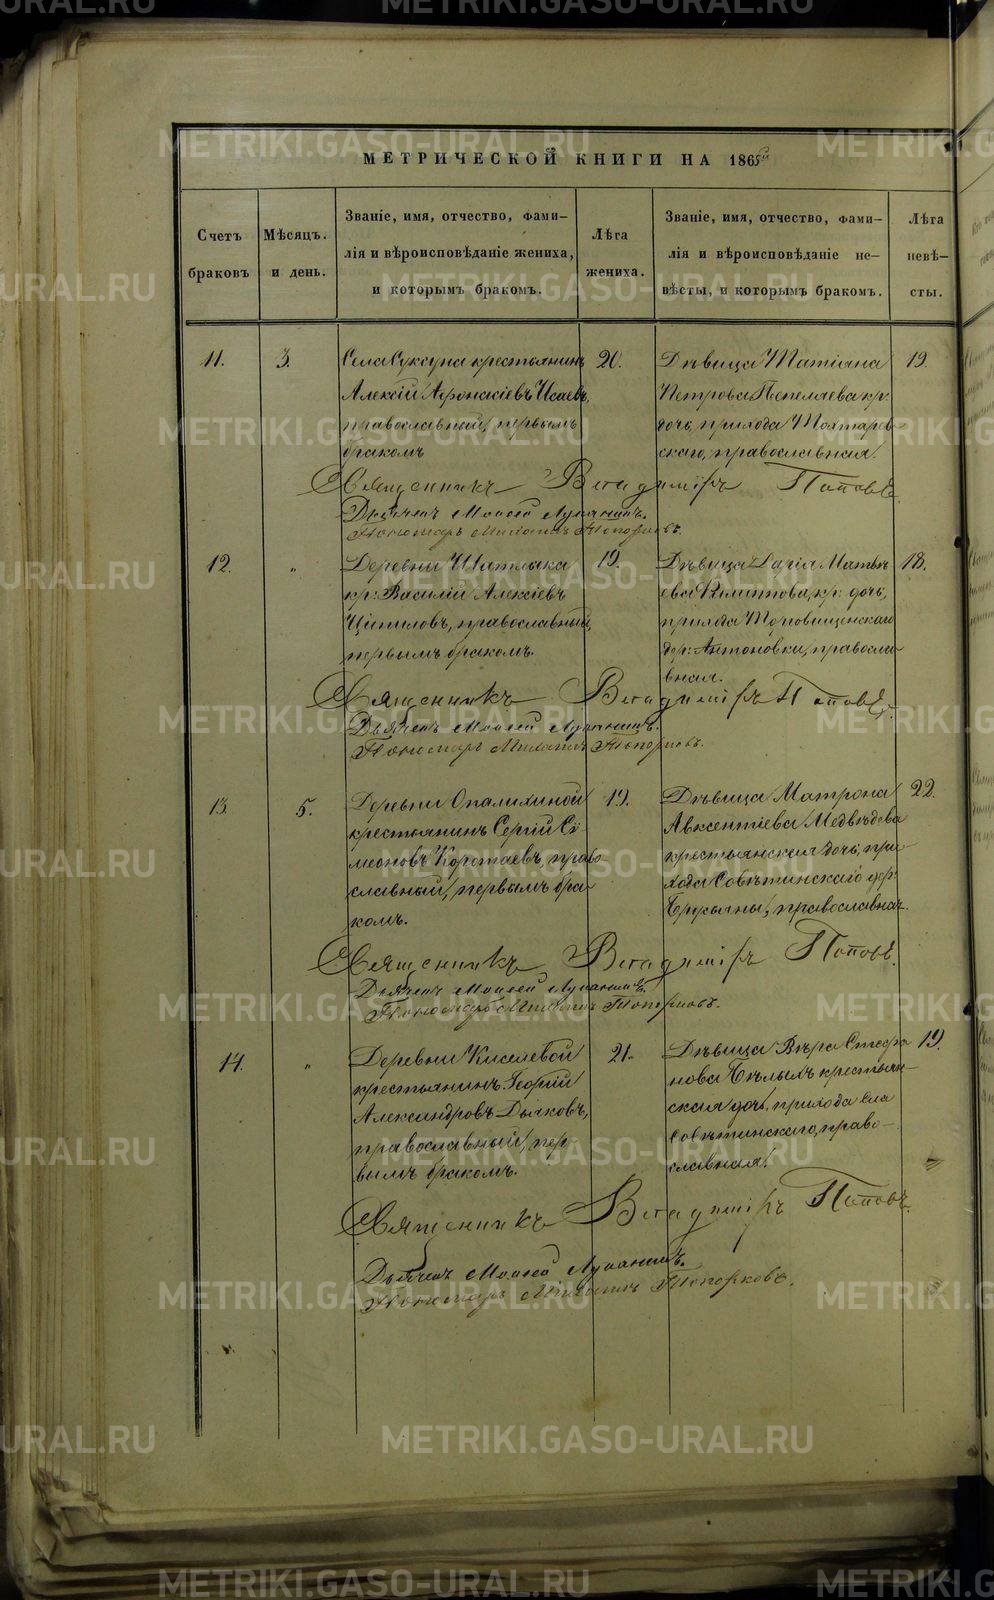 МЕТРИЧЕСКОЙ КНИГИ НА 1865
Счетъ браковъ
Мѣсяцъ. и день.
Званіе, имя, отчество, фами-
лія и вѣроисповѣданіе жениха,
и которымъ бракомъ.
Лѣта жениха.
Званіе, имя, отчество, фами-
лія и вѣроисповѣданіе не-
вѣсты, и которымъ бракомъ.
Лѣта невѣ-
сты.
11.
3.
Села Суксуна крестьянинъ
Алексій Афонасіевъ Исаевъ,
православный, первымъ
бракомъ
20.
Дѣвица Татіана
Петрова Пепеляева кр.
дочь, прихода Тохтарев-
скаго, православная.
19.
Священникъ Владиміръ Поповъ
Дьячекъ Моисей Лупанинъ.
Пономарь Михаилъ Топорковъ.
12.
"
Деревни Шатлыка
кр: Василій Алексіевъ
Ципиловъ, православный,
первымъ бракомъ.
19.
Дѣвица Дарія Матѳѣ
ева Филиппова, кр: дочь,
прихода Торговищенскаго
дер: Антоновки, правосла-
вная.
18.
Священникъ Владиміръ Поповъ.
Дьячекъ Моисей Лупанинъ.
Пономарь Михаилъ Топорковъ.
13.
5.
Деревни Опалихиной
крестьянинъ Сергій Сі-
меоновъ Коротаевъ, право
славный, первымъ бра
комъ.
19.
Дѣвица Матрона
Авксентіева Медвѣдева
крестьянская дочь, при
хода Совѣтинскаго дер:
православная.
22.
Священникъ Владиміръ Поповъ.
Дьячекъ Моисей Лупанинъ.
Пономарь Михаилъ Топорковъ.
14.
"
Деревни Киселевой
крестьянинъ Георгій
Александровъ Дьяковъ,
православный, пер
вымъ бракомъ.
21.
Дѣвица Вѣра Стефа
нова Бѣлыхъ крестьян-
ская дочь, прихода села
Совѣтинскаго, право-
славная.
19.
Священникъ Владиміръ Поповъ.
Дьячекъ Моисей Лупанинъ.
Пономарь Михаилъ Топорковъ.
METRIKI.GASO-URAL.RU